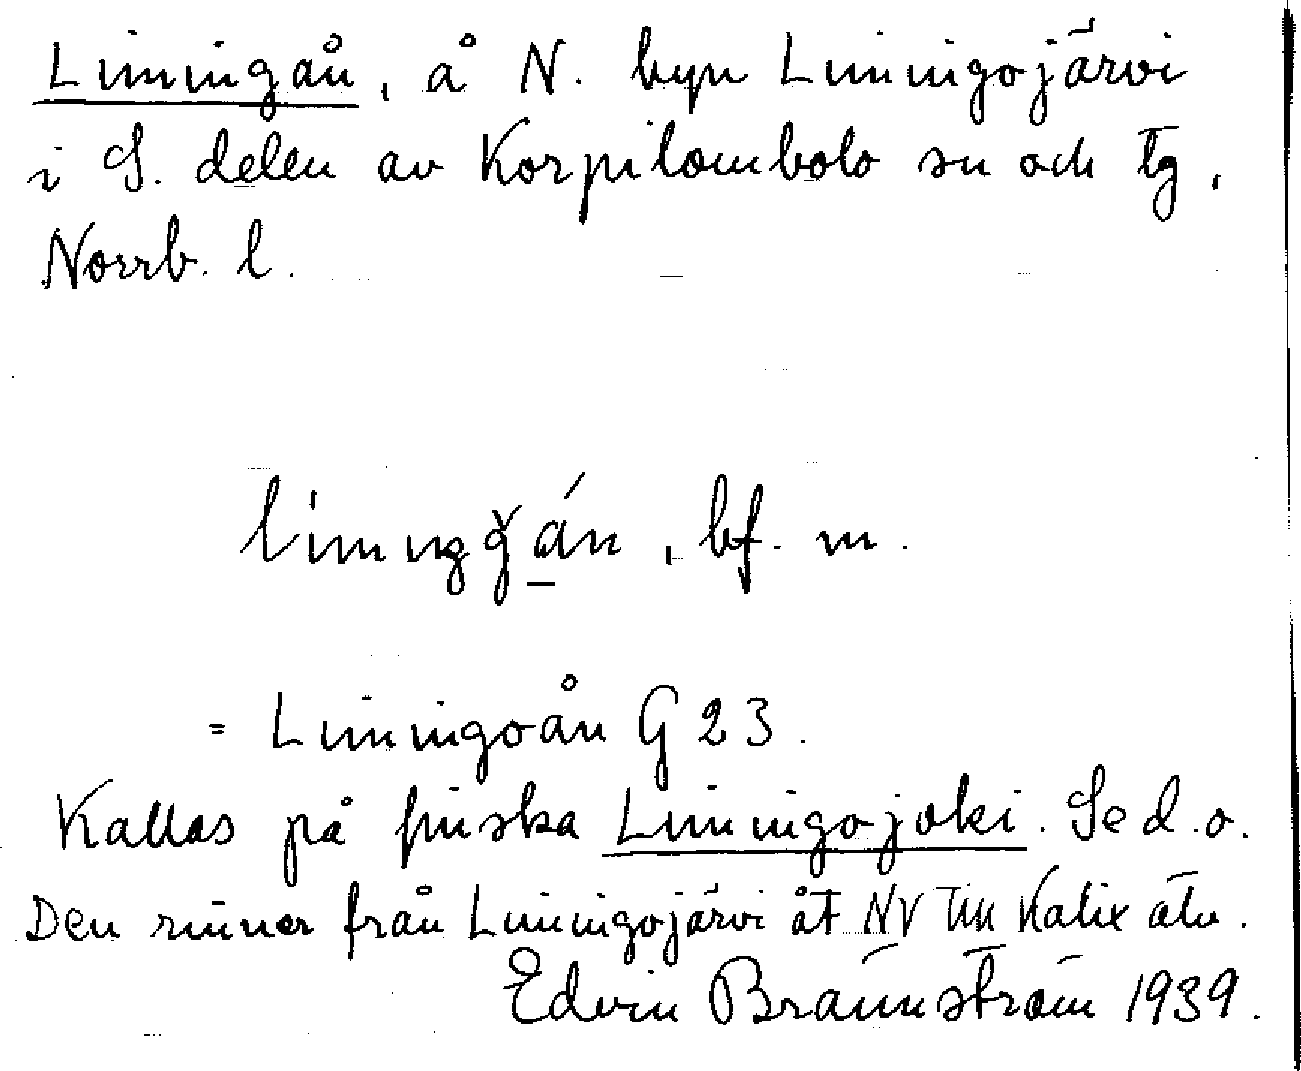 Liminigån, å N. byn Liminigojärvi
i S. delen av Korpilombolo sn och tg,
Norrb. l.
bf. m.
= Liminigoån G 23.
Kallas på finska Liminigojoki. Se d. o.
Den rinner från Liminigojärvi åt NV till Kalix älv.
Edvin Brännström 1939.